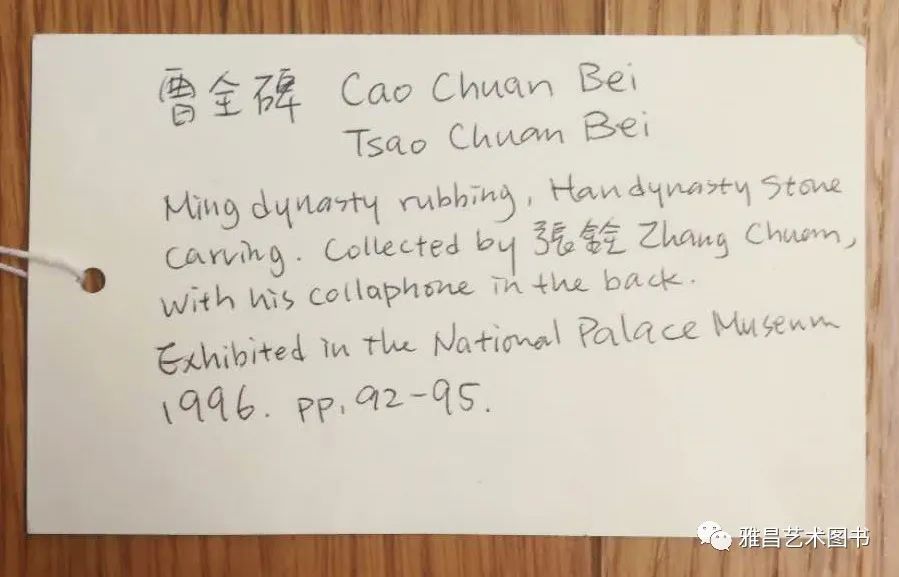 曹全碑 Cao Chuan Bei
Tsao Chuan Bei
Ming dynasty rubbing, Han dynasty stone
carving. Collected by 張銓 Zhang Chuan,
with his collaphone in the back.
Exhibited in the National Palace Museum
1996. pp. 92-95.
雅昌艺术图书